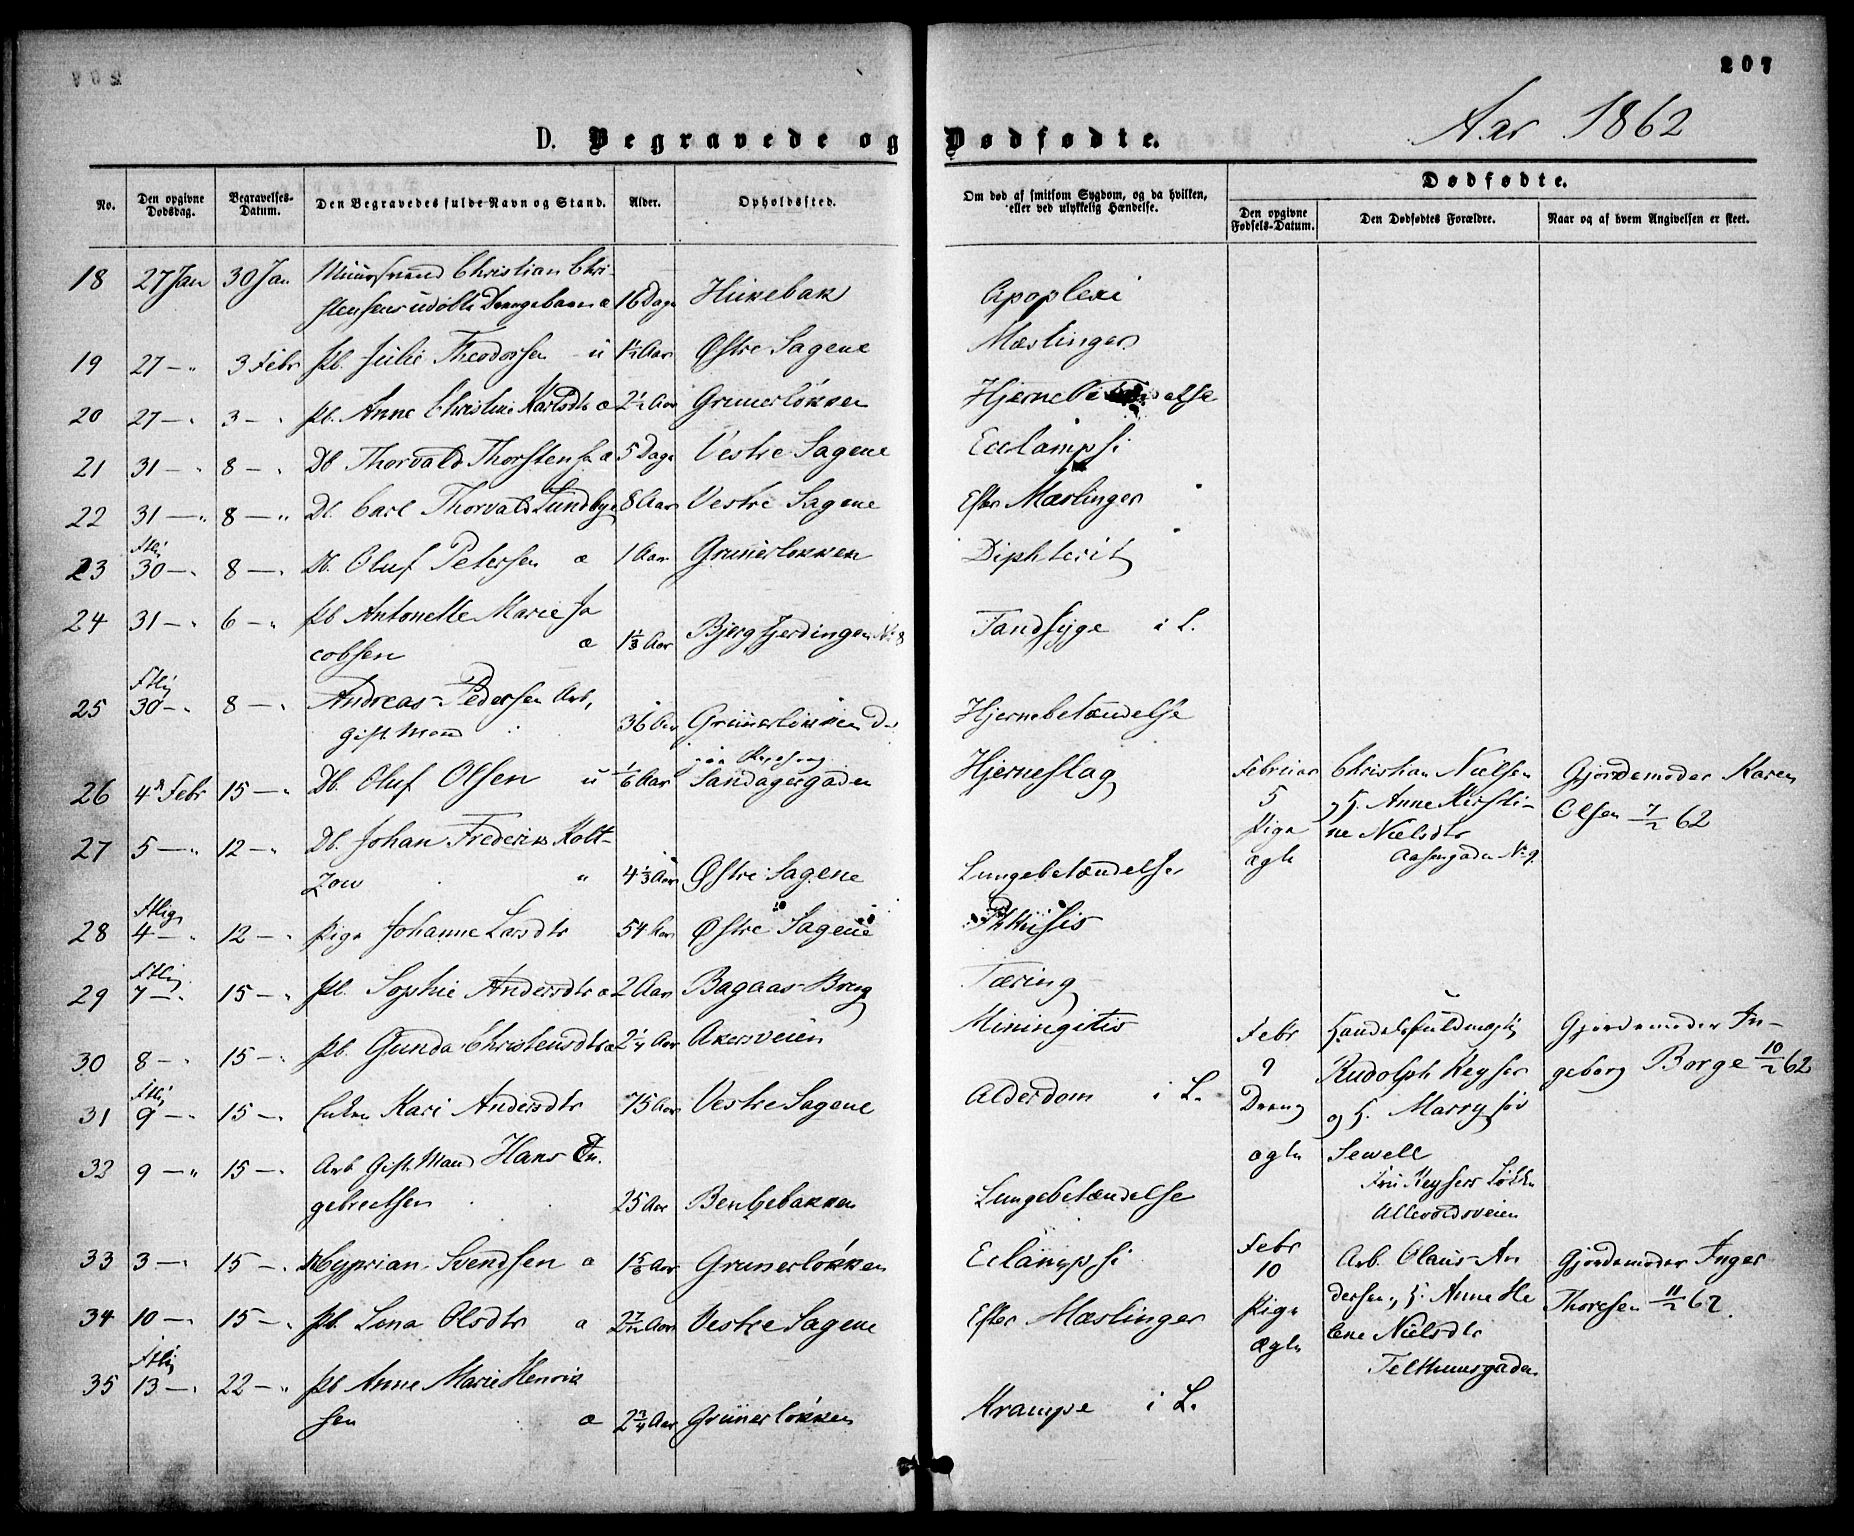 207
Aar 1862
D. Begravede og Dødfødte.
No.
Den opgivne Dødsdag.
Begravelses-Datum.
Den Begravedes fulde Navn og Stand.
Alder.
Opholdssted.
Om død af smitsom Sygdom, og da hvilken, eller ved ulykkelig Hændelse.
Dødfødte.
Den opgivne Fødsels-Datum.
Den Dødfødtes Forældre.
Naar og af hvem Angivelsen er skeet.
18 27 Jan 30 Jan Muurmand Christian Chri-
stensens udøbte Drengebarn æ 16 Dage Hukebak Apoplexi
19 27 — " 3 Febr Pb. Julie Theodorsen u 1½ Aar Østre Sagene Mæslinger
20 27 — " 3 — " Pb. Anne Christine Karlsdtr æ 2½ Aar Grunerløkken
21 31 — " 8 — " Db Thorvald Thorstensen æ 5 Dage Vestre Sagene Eclampsi
22 31 — " 8 — " Db. Carl Thorvald Lundbye 8 Aar Vestre Sagene Efter Mæslinger
23 Ftlig 30 — " 8 — " Db. Oluf Petersen æ 1 Aar Grunerløkken Diphterit
24 31 — " 6 — " Pb Antonette Marie Ja
cobsen æ 1⅓ Aar Bjergfjerdingen No 8 Tandsyge i L.
25 Ftlig 30 — " 8 — " Andreas Pedersen Arb,
gift Mand 36 Aar Grünerløkken D Hjernebetændelse
26 4de Febr 15 — " Db. Oluf Olsen u ⅙ Aar Sandagergaden Hjerneslag
27 5 — " 12 — " Db. Johan Frederik Kolt-
zow " 4⅓ Aar Østre Sagene Lungebetændelse
28 Ftlig 4 — " 12 — " Pige Johanne Larsdtr 54 Aar Østre Sagene Phthisis
29 Ftlig 7 — " 15 — " Pb. Sophie Andersdtr æ 2 Aar Bagaas Brug Tæring
30 8 — " 15 — " Pb. Gunda Christensdtr æ 2¼ Aar Akersveien Miningitis
31 Ftlig 9 — " 15 — " Enken Kari Andersdtr 75 Aar Vestre Sagene Alderdom i L.
32 9 — " 15 — " Arb Gift Mand Hans En.
gebretsen 25 Aar Bentsebakken Lungebetændelse
33 3 — " 15 — " Cyprian Svendsen æ 1⅚ Aar Grunerløkken Eclampsi
34 10 — " 15 — " Pb. Lina Olsdtr æ 2 7/12 Aar Vestre Sagene Efter Mæslinger
35 Ftlig 13 — " 22 — " Pb Anne Marie Henrik
sen æ 2 Aar Grünerløkken Krampe i L.
Februar 5 Pige ægte
Christian Nielsen
og H. Anne Kirsti-
ne Nielsdtr
Aasengaden No 9.
Gjordemoder Karen
Olsen 7/2 62
Febr 9 Dreng ægte
Handelsfuldmægtig
Rudolph Keyser
og H. Marry født
Sewell
Fru Keysers Løkke
Ullevoldsveien
Gjordemoder In-
geborg Borge 10/2 62
Febr 10 Pige ægte
Arb. Olaus An
dersen, H. Anne He
lene Nielsdtr
Telthuusgaden
Gjordemoder Inger
Thoresen 11/2 62.